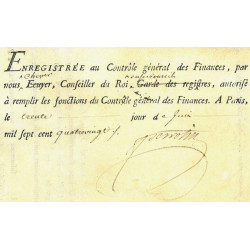 ENREGISTRÉE au Contrôle général des Finances, par
nous, Ecuyer, Conseiller du Roi, Garde des registres, autorisé
à remplir les fonctions du Contrôle général des Finances. A Paris,
le trente jour de Juin
mil sept cent quatrevingt